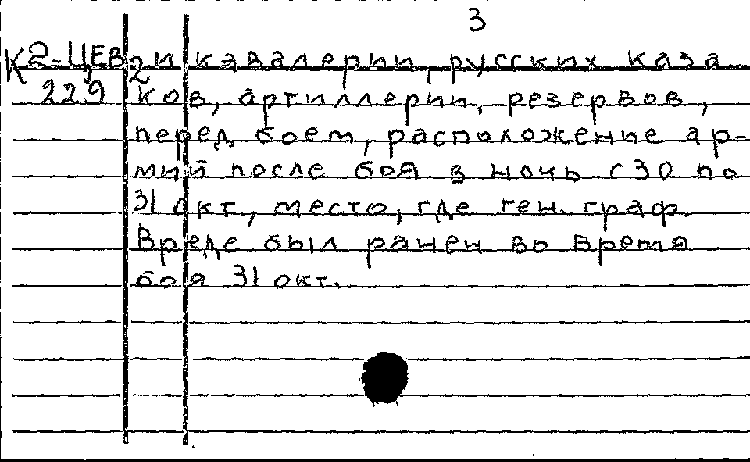 3
К 2-ЦЕВ 2 и кавалерии, русских каза
229 ков, артиллерии, резервов,
перед боем, расположение ар-
мий после боя в ночь с 30 по
31 окт., место, где ген. граф.
Вреде был ранен во время
боя 31 окт.